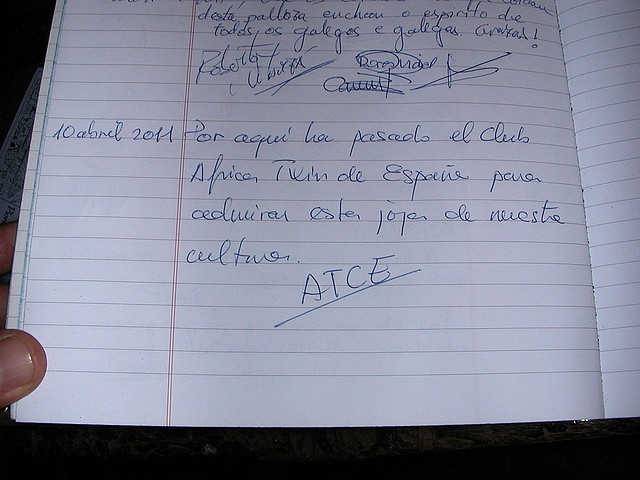 desta palloza enchen o espírito de
todos os galegos e galegas. Grazas!
10 abril 2011 Por aquí ha pasado el Club
Africa Twin de España para
admirar esta joya de nuestra
cultura.
ATCE